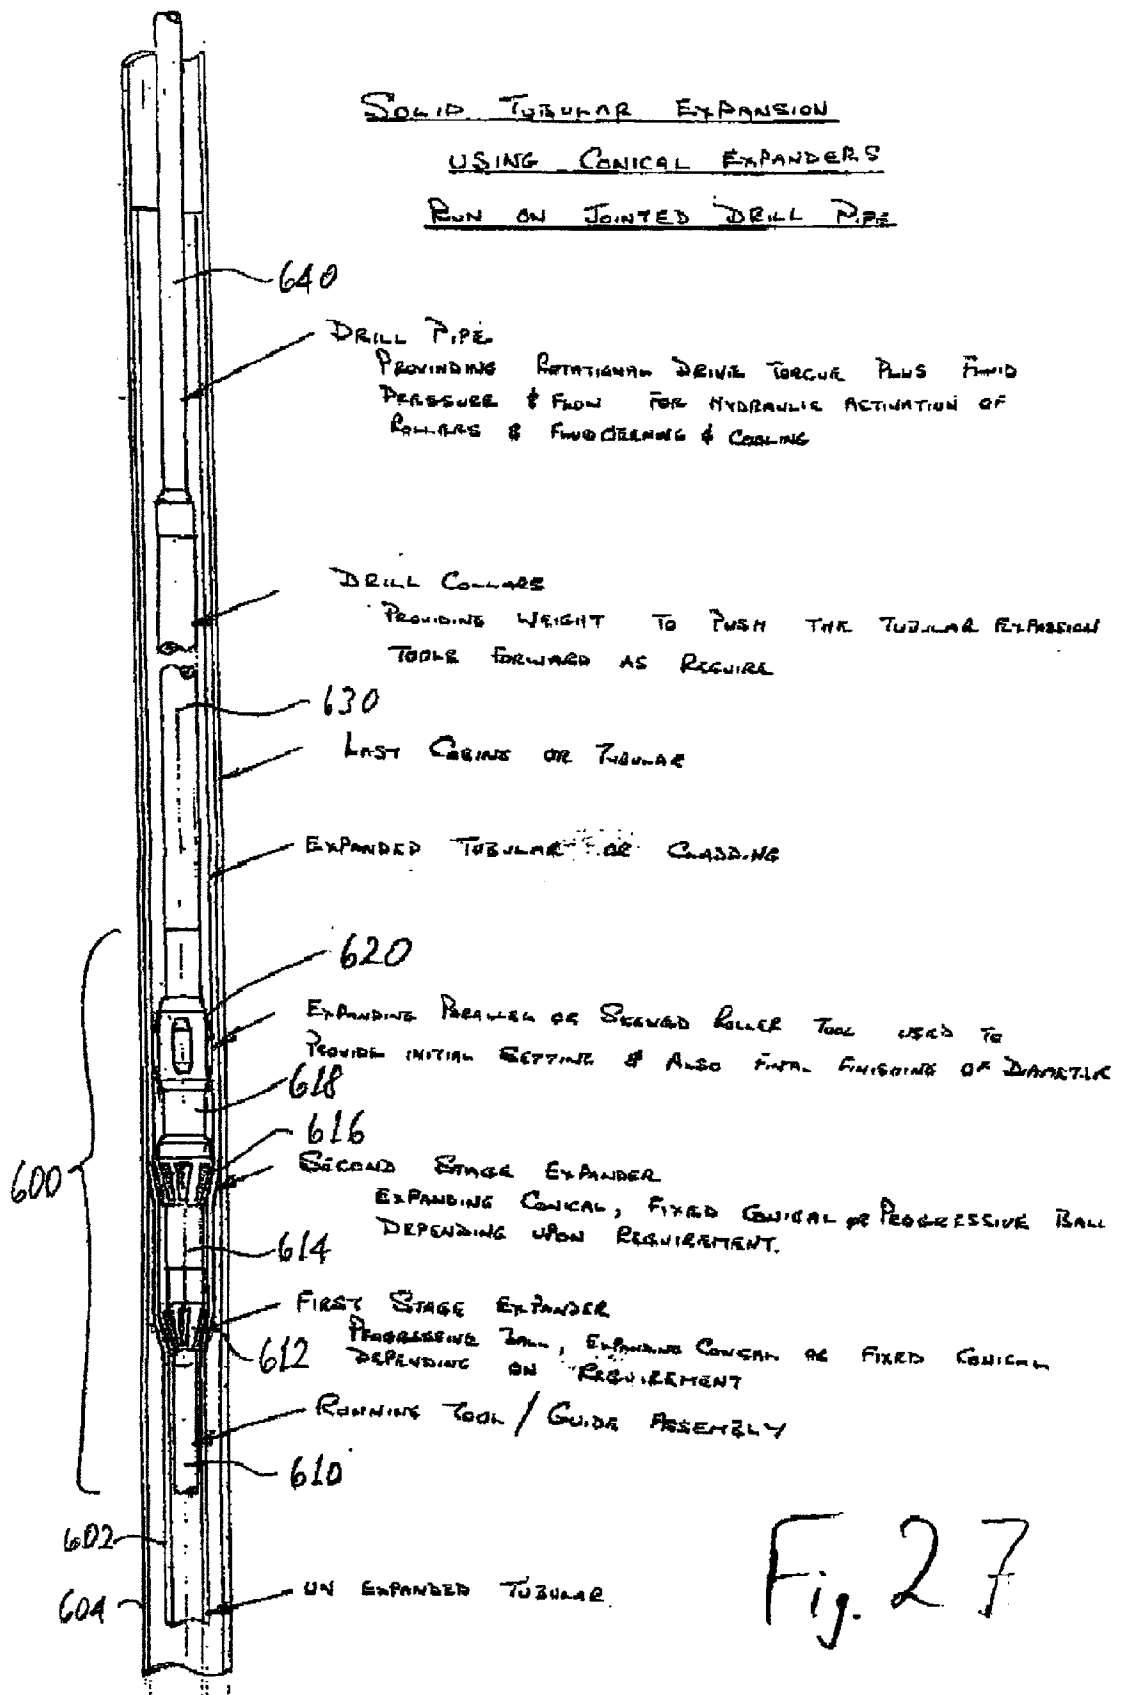 SOLID TUBULAR EXPANSION
USING CONICAL EXPANDERS
RUN ON JOINTED DRILL PIPE
640
DRILL PIPE
PROVINDING ROTATIONAL DRIVE TORQUE PLUS FLUID
PRESSURE & FLOW FOR HYDRAULIC ACTIVATION OF
ROLLERS & COOLING
DRILL COLLARS
PROVIDING WEIGHT TO PUSH THE TUBULAR EXPANSION
TOOLS FORWARD AS REQUIRE
630
LAST CASING OR TUBULAR
EXPANDED TUBULAR OR CLADDING
620
EXPANDING PARALLEL OR SKEWED ROLLER TOOL USED TO
PROVIDE INITIAL SETTING & ALSO FINAL FINISHING OF DIAMETER
618
616
600
SECOND STAGE EXPANDER
EXPANDING CONICAL, FIXED CONICAL OR PROGRESSIVE BALL
DEPENDING UPON REQUIREMENT.
614
FIRST STAGE EXPANDER
PROGRESSING BALL, EXPANDING CONICAL OR FIXED CONICAL
612 DEPENDING ON REQUIREMENT
RUNNING TOOL / GUIDE ASSEMBLY
610
602
604
UN EXPANDED TUBULAR
Fig. 27